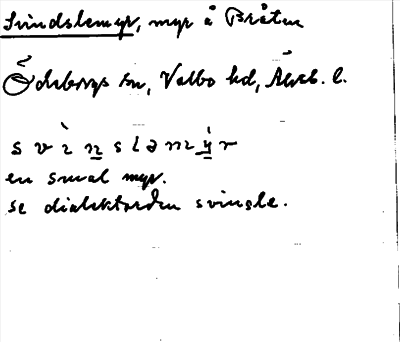 Svindslemyr, myr å Bråten
Ödeborgs sn, Valbo hd, Älvsb. l.
svìnsləmýr
en smal myr.
se dialektorden svinsle.